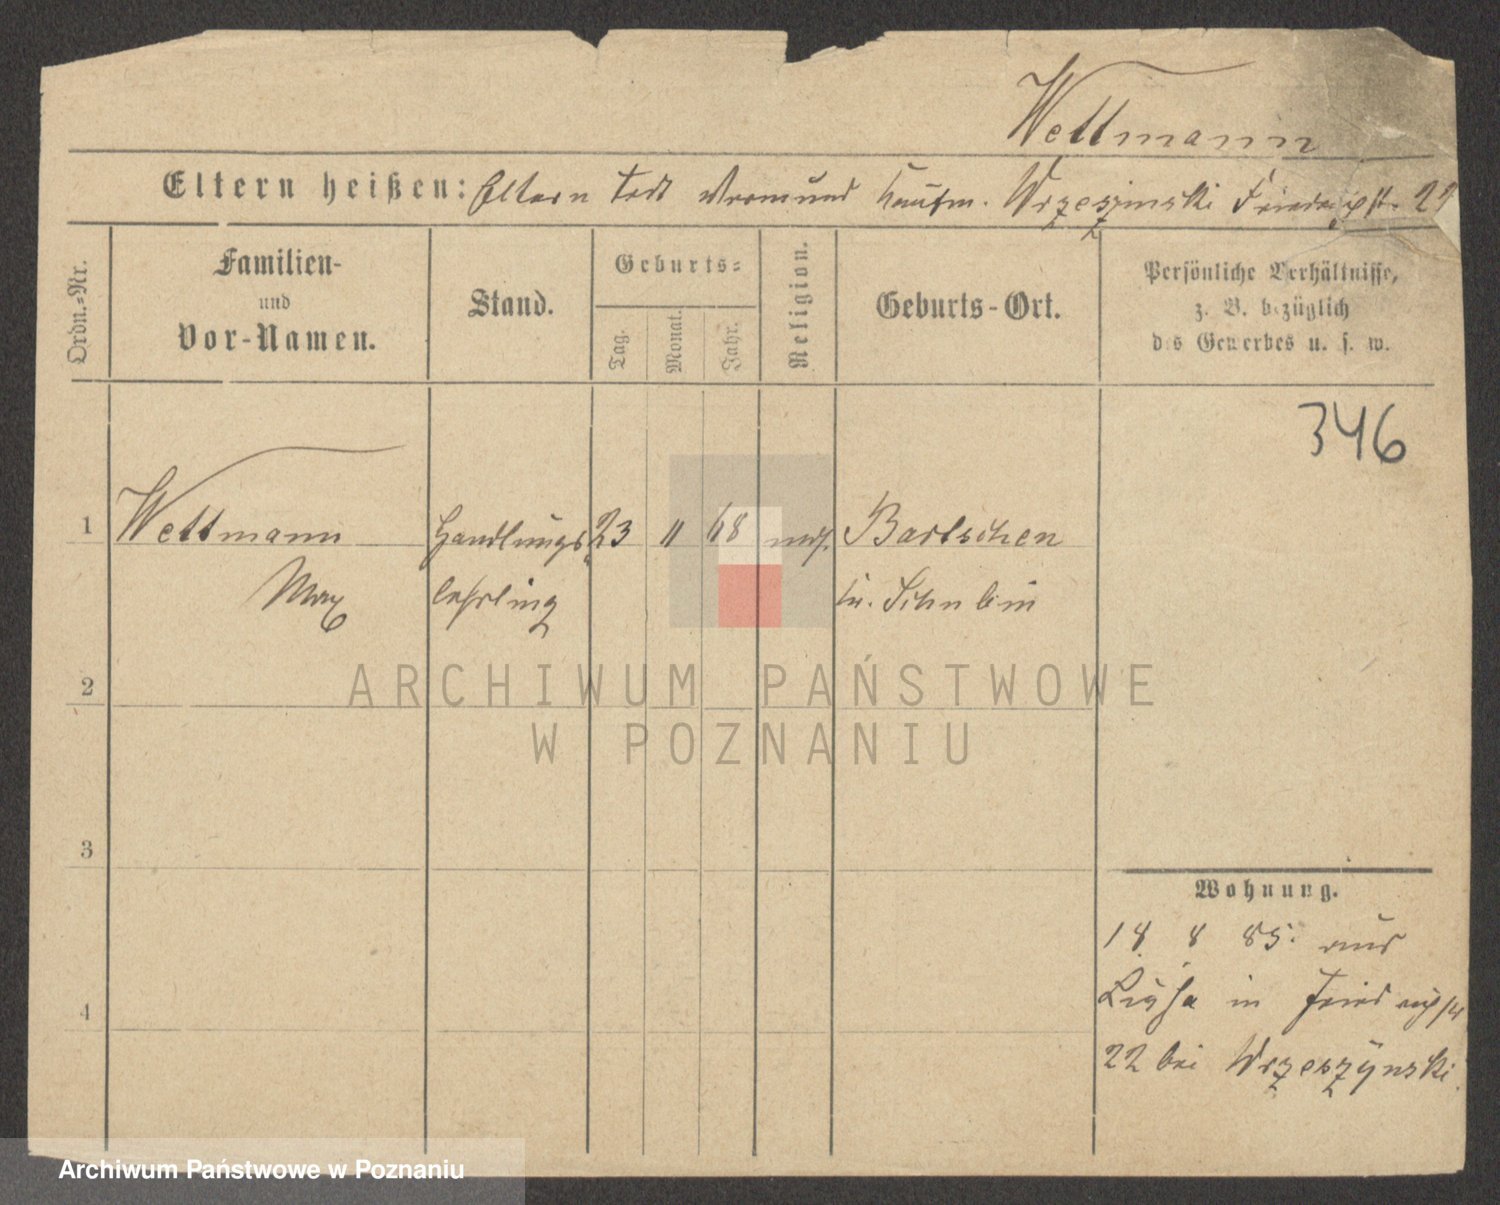 Wettmann
Eltern heißen: Eltern todt Vormund Kaufm. Wrzeszinski Friedrichstr. 22
Ordn.-Nr.
Familien-
und
Vor-Namen.
Stand.
Geburts-
Tag.
Monat.
Jahr.
Religion.
Geburts-Ort.
Persönliche Verhältnisse,
z. B. bezüglich
des Gewerbes u. s. w.
346
1 Wettmann Handlungs 23 11 68 mos. Bartschen
Max lehrling
2
ARCHIWUM PAŃSTWOWE
W POZNANIU
3
Wohnung.
18 8 85. aus
in Friedrichstr
4
22 bei Wrzeszynski
Archiwum Państwowe w Poznaniu